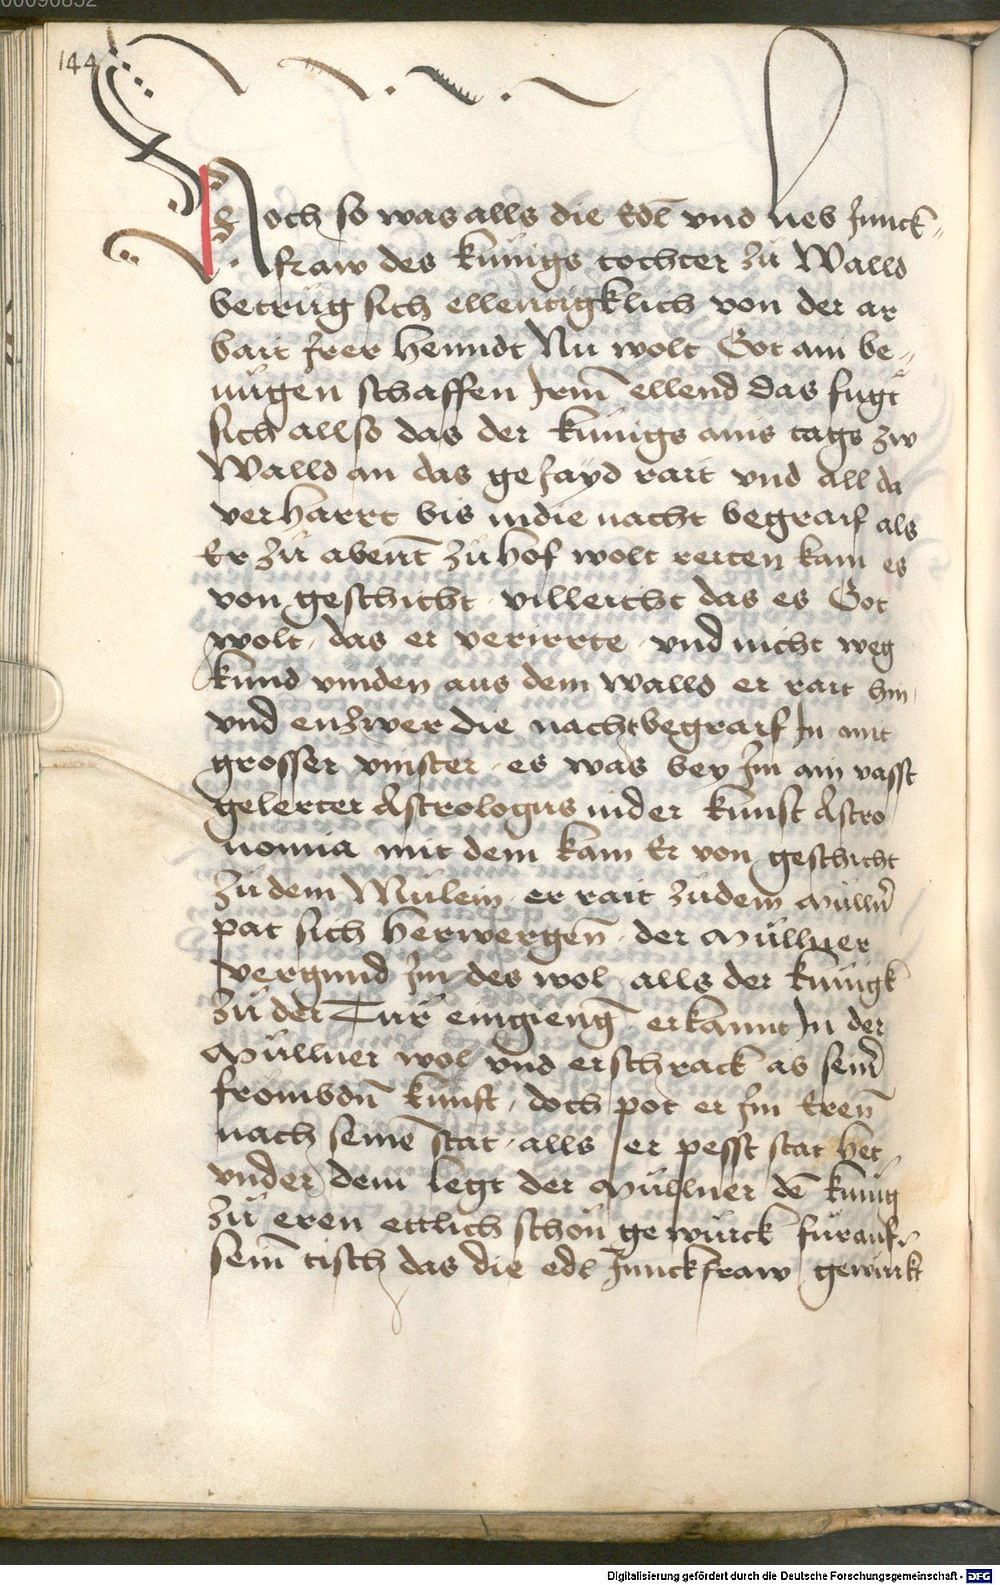 144
Noch so was alls die Edl̄ vnd lieb Junck„
fraw des künigs tochter zu Walld
betrüg sich ellentigklich von der ar
bait Jrer henndt Nu wolt Got ain be„
nügen schaffen Jrem̄ ellend das fugt
sich allso das der künigs ains tags zw
Walld an das geJayd rait vnd all da
verharrt bis indie nacht begraif als
Er zu abent̄ zu hof wolt reiten kam es
von geschicht · villeicht das es Got
wolt · das er verirrte · vnd nicht weg
kund vinden aus dem walld er rait hin
vnd enzwer die nacht begraif Jn mit
grosser vinster · es was bey Jm ain vasst
gelerter Astrologus inder kunst Astro
nomia mit dem kam Er von geschicht
zu dem Mülein · er rait zudem mülln̄
pat sich herwergen̄ · der müllner
vergund Jm des wol · alls der künigk
zu der Tür eingienḡ · erkannt Jn der
müllner wol vnd erschrack ab sein̄
kunst · doch pot er Jm Eren̄
nach seinē stat · alls er pesst stat het
vnder dem legt der müllner dē künig
zu eren ettlich schön gewürck für auf
sein̄ tisch das die edl Junckfraw gewürkt
Digitalisierung gefördert durch die Deutsche Forschungsgemeinschaft - DFG